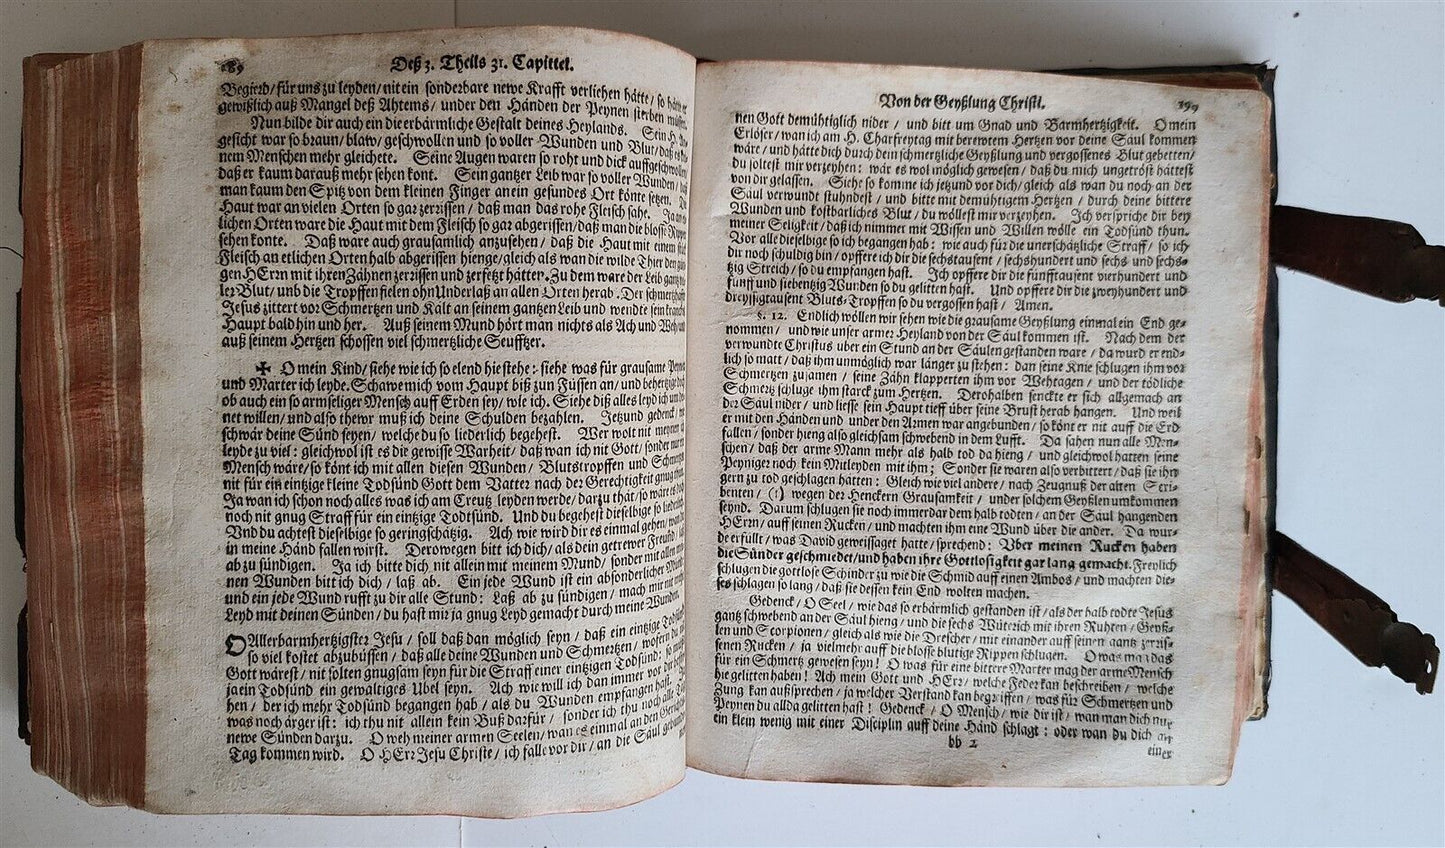 189
Deß 3. Theils 31. Capittel.
Begierd/ für uns zu leyden/ nit ein sonderbare newe Krafft verliehen hätte/ so hätte er
gewißlich auß Mangel deß Ahtems/ under den Händen der Peynen sterben müssen.
Nun bilde dir auch ein die erbärmliche Gestalt deines Heylands. Sein H. An-
gesicht war so braun/ blaw/ geschwollen und so voller Wunden und Blut/ daß es
nem Menschen mehr gleichete. Seine Augen waren so roht und dick auffgeschwollen/
daß er kaum darauß mehr sehen kont. Sein gantzer Leib war so voller Wunden/ daß
man kaum den Spitz von dem kleinen Finger an ein gesundes Ort könte setzen. Die
Haut war an vielen Orten so gar zerrissen/ daß man das rohe Fleisch sahe. Ja an
lichen Orten ware die Haut mit dem Fleisch so gar abgerissen/ daß man die blosse Rippen
sehen konte. Daß ware auch grausamlich anzusehen/ daß die Haut mit einem stück
Fleisch an etlichen Orten halb abgerissen hienge/ gleich als wan die wilde Thier den
gen HErrn mit ihren Zähnen zerrissen und zerfetzt hätten. Zu dem ware der Leib gantz
ler Blut/ und die Tropffen fielen ohn Underlaß an allen Orten herab. Der schmertzhafte
Jesus zittert vor Schmertzen und Kält an seinem gantzen Leib und wendte sein
Haupt bald hin und her. Auß seinem Mund hört man nichts als Ach und Weh/ und
auß seinem Hertzen schossen viel schmertzliche Seufftzer.
✠ O mein Kind/ siehe wie ich so elend hie stehe: siehe was für grausame Peynen
und Marter ich leyde. Schawe mich vom Haupt biß zun Füssen an/ und behertzige
ob auch ein so armseliger Mensch auff Erden sey/ wie ich. Siehe diß alles leyd ich um
net willen/ und also thewr muß ich deine Schulden bezahlen. Jetzund gedenck/ wie
schwär deine Sünd seyen/ welche du so liederlich begehest. Wer wolt nit meynen
leyde zu viel: gleichwol ist es die gewisse Warheit/ daß wan ich nit Gott/ sonder nur
Mensch wäre/ so könt ich mit allen diesen Wunden/ Blutstropffen und Schmertzen
nit für ein eintzige kleine Todsünd Gott dem Vatter nach der Gerechtigkeit gnug
Ja wan ich schon noch alles was ich am Creutz leyden werde/ darzu thät/ so wäre es
noch nit gnug Straff für ein eintzige Todtsünd. Und du begehest dieselbige so
Und du achtest dieselbige so geringschätzig. Ach wie wird dir es einmal gehen/ wan du
in meine Händ fallen wirst. Derowegen bitt ich dich/ als dein getrewer Freund/
ab zu sündigen. Ja ich bitte dich nit allein mit meinem Mund/ sonder mit allen
nen Wunden bitt ich dich/ laß ab. Ein jede Wund ist ein absonderlicher Mund/
und ein jede Wund rufft zu dir alle Stund: Laß ab zu sündigen/ mach mir nit
Leyd mit deinen Sünden/ du hast mir ja gnug Leyd gemacht durch meine Wunden.
O Allerbarmhertzigster Jesu/ soll daß dan möglich seyn/ daß ein eintzige Todsünd
so viel kostet abzubüssen/ daß alle deine Wunden und Schmertzen/ wofern du nit
Gott wärest/ nit solten gnugsam seyn für die Straff einer eintzigen Todsünd: so muß
ja ein Todsünd ein gewaltiges Ubel seyn. Ach wie will ich dan immer vor dir
hen/ der ich mehr Todsünd begangen hab/ als du Wunden empfangen hast.
was noch ärger ist: ich thu nit allein kein Buß darfür/ sonder ich thu noch alle
newe Sünden darzu. O weh meiner armen Seelen/ wan es einmal an den
Tag kommen wird. O HErr Jesu Christe/ ich falle vor dir/ an die Säul gebunden
Von der Geyßlung Christi.
199
nen Gott demühtiglich nider/ und bitt um Gnad und Barmhertzigkeit. O mein
Erlöser/ wan ich am H. Charfreytag mit berewtem Hertzen vor deine Säul kommen
wäre/ und hätte dich durch dein schmertzliche Geyßlung und vergossenes Blut gebetten/
du soltest mir verzeyhen: wär es wol möglich gewesen/ daß du mich ungetröst hättest
von dir gelassen. Siehe so komme ich jetzund vor dich/ gleich als wan du noch an der
Säul verwundt stuhndest/ und bitte mit demühtigem Hertzen/ durch deine bittere
Wunden und kostbarliches Blut/ du wöllest mir verzeyhen. Ich verspriche dir bey
meiner Seligkeit/ daß ich nimmer mit Wissen und Willen wölle ein Todsünd thun.
Vor alle dieselbige so ich begangen hab: wie auch für die unerschätzliche Straff/ so ich
dir noch schuldig bin/ opffere ich dir die sechstausent/ sechshundert und sechs und sechs-
tzig Streich/ so du empfangen hast. Ich opffere dir die fünfftausent vierhundert und
fünff und siebentzig Wunden so du gelitten hast. Und opffere dir die zweyhundert und
dreyssigtausent Bluts-Tropffen so du vergossen hast/ Amen.
§. 12. Endlich wöllen wir sehen wie die grausame Geyßlung einmal ein End ge-
nommen/ und wie unser armer Heyland von der Säul kommen ist. Nach dem der
verwundte Christus uber ein Stund an der Säulen gestanden ware/ da wurd er end-
lich so matt/ daß ihm unmöglich war länger zu stehen: dan seine Knie schlugen ihm vor
Schmertzen zusamen/ seine Zähn klapperten ihm vor Wehtagen/ und der tödliche
Schmertz schluge ihm starck zum Hertzen. Derohalben senckte er sich allgemach an
der Säul nider/ und liesse sein Haupt tieff über seine Brust herab hangen. Und weil
er mit den Händen und under den Armen war angebunden/ so könt er nit auff die Erd
fallen/ sonder hieng also gleichsam schwebend in dem Lufft. Da sahen nun alle Men-
schen/ daß der arme Mann mehr als halb tod da hieng/ und gleichwol hatten seine
Peyniger noch kein Mitleyden mit ihm; Sonder sie waren also verbittert/ daß sie ihn
gern zu tod geschlagen hätten: Gleich wie viel andere/ nach Zeugnuß der alten Scri-
benten/ (!) wegen der Henckern Grausamkeit/ under solchem Geyßlen umkommen
seynd. Darum schlugen sie noch immerdar dem halb todten/ an der Säul hangenden
HErrn/ auff seinen Rucken/ und machten ihm eine Wund über die ander. Da wur-
de erfüllt/ was David geweissaget hatte/ sprechend: Uber meinen Rucken haben
die Sünder geschmiedet/ und haben ihre Gottlosigkeit gar lang gemacht. Freylich
schlugen die gottlose Schinder zu wie die Schmid auff einen Ambos/ und machten die-
ses schlagen so lang/ daß sie dessen kein End wolten machen.
Gedenck/ O Seel/ wie das so erbärmlich gestanden ist/ als der halb todte Jesus
gantz schwebend an der Säul hieng/ und die sechs Wüterich mit ihren Ruhten/ Geyß-
len und Scorpionen/ gleich als wie die Drescher/ mit einander auff seinen gantz zerris-
senen Rucken/ ja vielmehr auff die blosse blutige Rippen schlugen. O was mag das
für ein Schmertz gewesen seyn! O was für eine bittere Marter mag der arme Mensch
hie gelitten haben! Ach mein Gott und HErr/ welche Feder kan beschreiben/ welche
Zung kan außsprechen/ ja welcher Verstand kan begreiffen/ was für Schmertzen und
Peynen du allda gelitten hast! Gedenck/ O Mensch/ wie dir ist/ wan man dich nur
ein klein wenig mit einer Disciplin auff deine Händ schlagt: oder wan du dich an
bb 2
einer